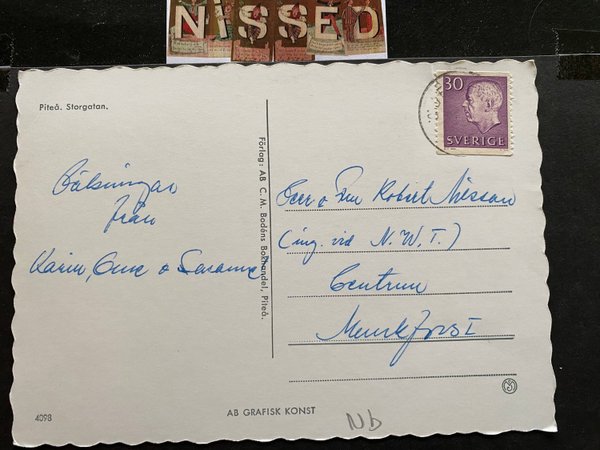 NiSSED
Piteå. Storgatan.
30
SVERIGE
Hälsningar
från
Karin, Ove o Susanne
Förlag: AB C. M. Bodéns Bokhandel, Piteå.
Herr o Fru Robert Nilsson
(ing. vid N.W.T.)
Centrum
Munkfors I
4098
AB GRAFISK KONST
Nb